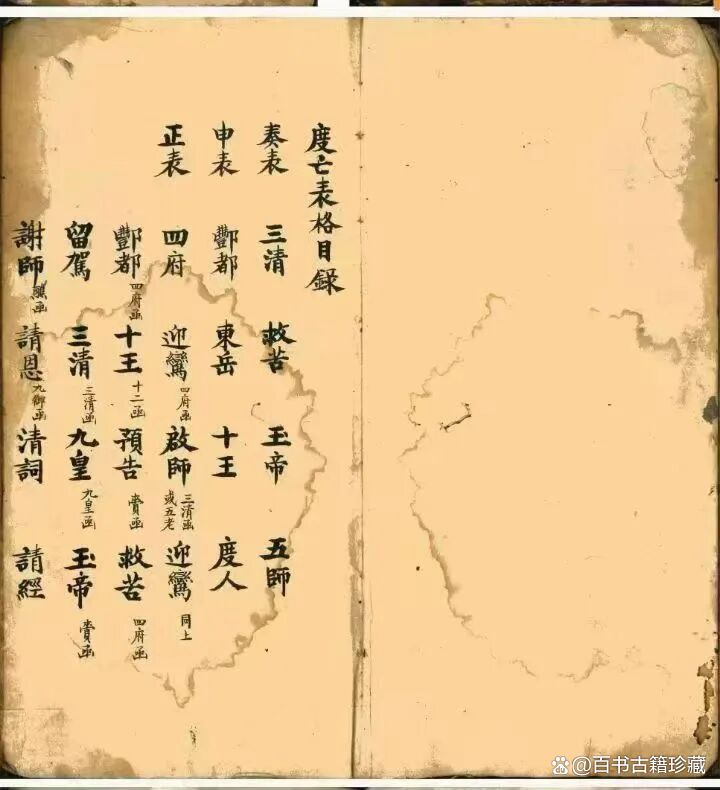 度亡表格目錄
奏表 三清 救苦 玉帝 五師
申表 酆都 東岳 十王 度人
正表 四府 迎鸞四府函 啟師三清函或五老 迎鸞同上
酆都四府函 十王十二函 預告賫函 救苦四府函
留駕 三清三清函 九皇九皇函 玉帝賫函
謝師 函 請恩九御函 清詞 請經
@百书古籍珍藏